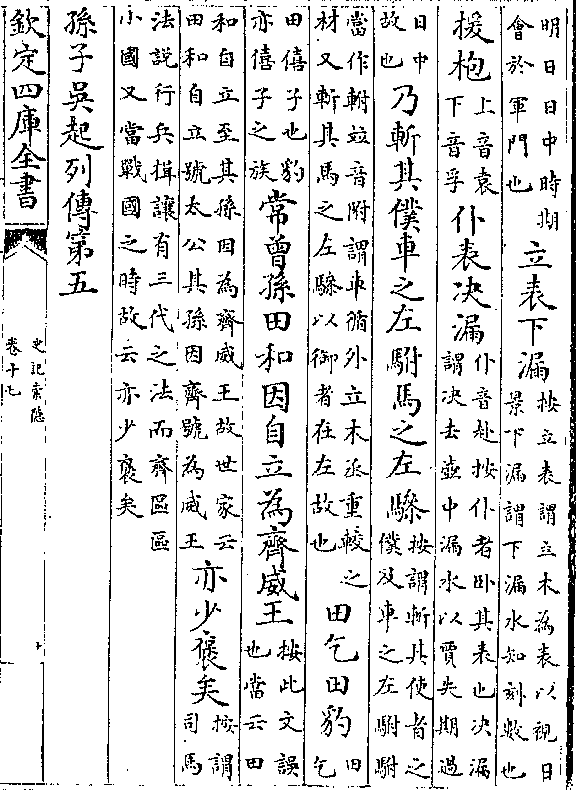 明日日中時期會於軍門也立表下漏按立表謂立木為表以視日景下漏謂下漏水知刻數也
援枹上音袁下音孚仆表决漏仆音赴按仆者卧其表也决漏謂决去壺中漏水以賈失期過
日中故也乃斬其僕車之左駙馬之左驂按謂斬其使者之僕及車之左駙駙
當作軵竝音附謂車循外立木丞重較之材又斬其馬之左驂以御者在左故也田乞田豹田乞
田僖子也豹亦僖子之族常曾孫田和因自立為齊威王按此文誤也當云田
和自立至其孫因為齊威王故世家云田和自立號太公其孫因齊號為威王亦少褒矣按謂司馬
法說行兵揖讓有三代之法而齊區區小國又當戰國之時故云亦少褒矣
孫子吳起列傳第五
欽定四庫全書
史記索隱
卷十七